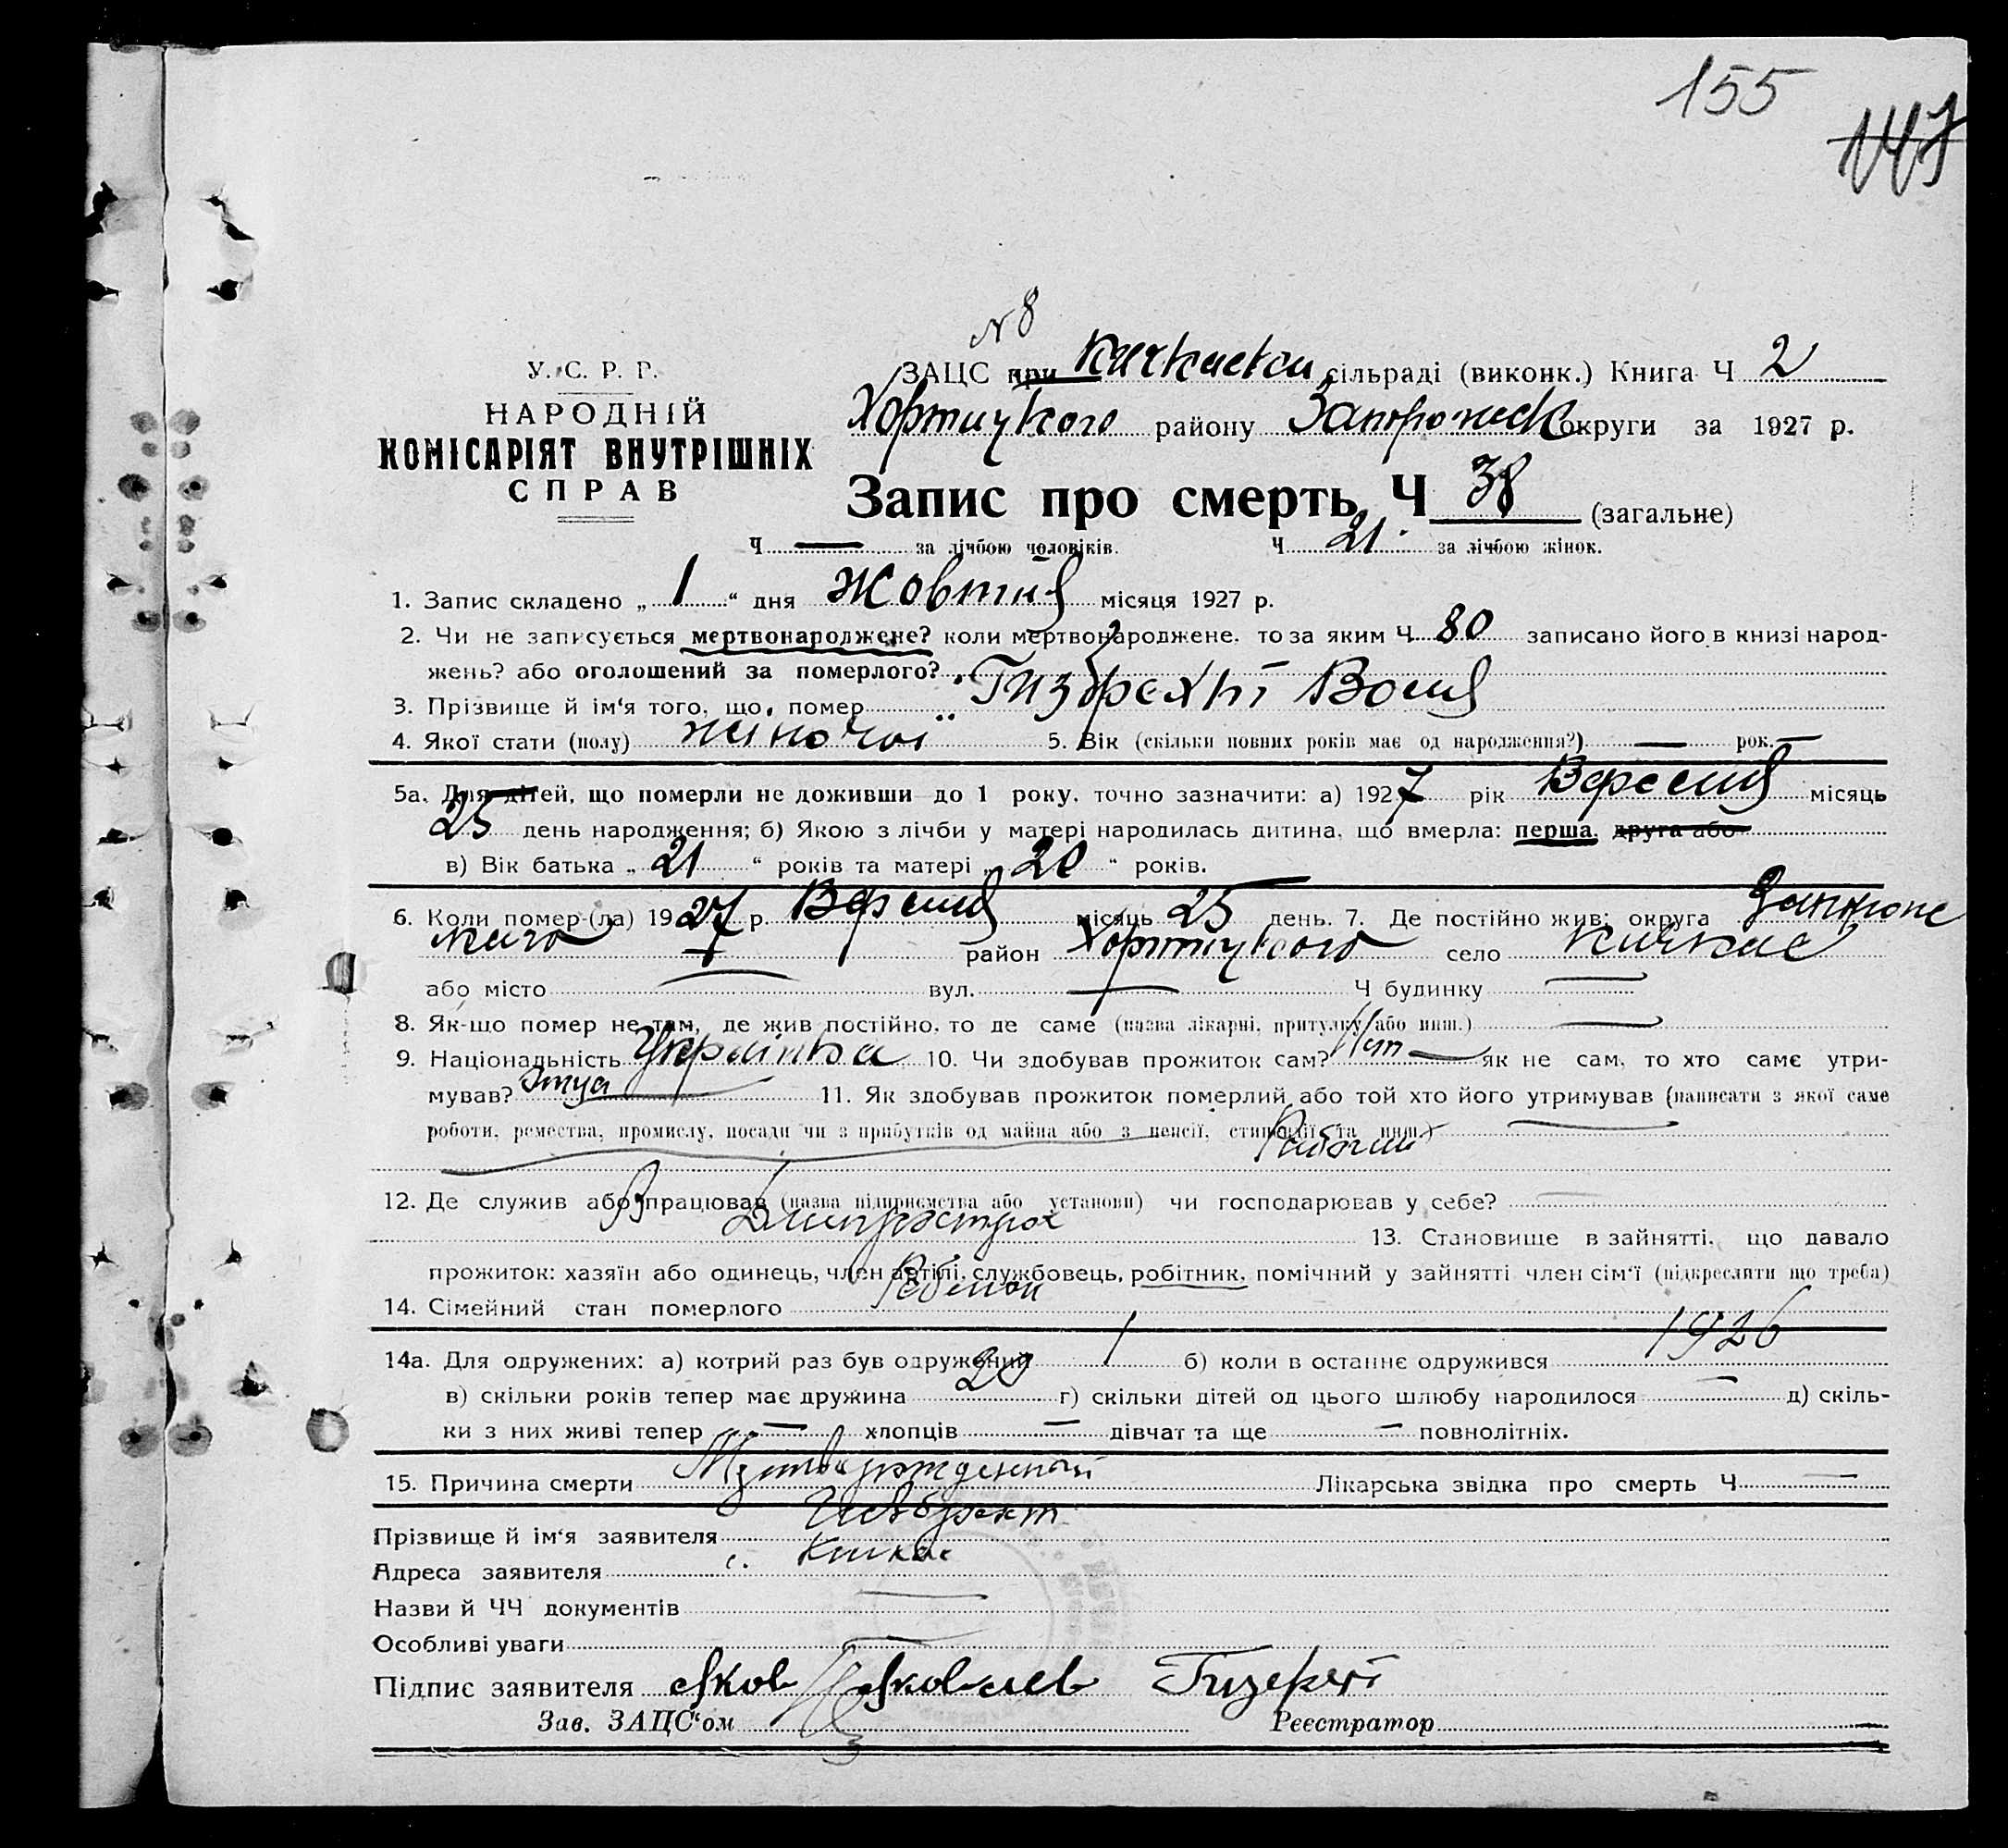 155
147
№ 8
У. С. Р. Р.
НАРОДНІЙ
КОМІСАРІЯТ ВНУТРІШНІХ
СПРАВ
ЗАЦС при Кичкаській сільраді (виконк.) Книга Ч 2
Хортицького району Запоріжськ округи за 1927 р.
Запис про смерть Ч 38 (загальне)
Ч — за лічбою чоловіків. Ч 21 за лічбою жінок.
1. Запис складено „ 1 “ дня Жовтня місяця 1927 р.
2. Чи не записується мертвонароджене? коли мертвонароджене, то за яким Ч 80 записано його в книзі народ-
жень? або оголошений за померлого?
3. Прізвище й ім'я того, що помер Гизбрехт
4. Якої стати (полу) жіночої 5. Вік (скільки повних років має од народження?) — рок. —
5а. Для дітей, що померли не доживши до 1 року, точно зазначити: а) 1927 рік Вересня місяць
25 день народження; б) Якою з лічби у матері народилась дитина, що вмерла: перша, друга або
в) Вік батька „ 21 “ років та матері „ 20 “ років.
6. Коли помер-(ла) 1927 р. Вересня місяць 25 день. 7. Де постійно жив: округа
район Хортицького село Кичкас
або місто — вул. — Ч будинку —
8. Як-що помер не там, де жив постійно, то де саме (назва лікарні, притулку або инш.) —
9. Національність Українка 10. Чи здобував прожиток сам? Нет — як не сам, то хто саме утри-
мував? Отца 11. Як здобував прожиток померлий або той хто його утримував (написати з якої саме
роботи, ремества, промислу, посади чи з прибутків од майна або з пенсії, стипендії та инш.) —
Рабочий
12. Де служив або працював (назва підприємства або установи) чи господарював у себе? —
В Днипрострое 13. Становище в зайнятті, що давало
прожиток: хазяїн або одинець, член артілі, службовець, робітник, помічний у зайнятті член сім'ї (підкреслити що треба)
14. Сімейний стан померлого Ребенок
14а. Для одружених: а) котрий раз був одружений 1 б) коли в останнє одружився 1926
в) скільки років тепер має дружина 20 г) скільки дітей од цього шлюбу народилося — д) скіль-
ки з них живі тепер — хлопців — дівчат та ще — повнолітніх.
15. Причина смерти Лікарська звідка про смерть Ч —
Прізвище й ім'я заявителя Гизбрехт
Адреса заявителя с. Кичкас
Назви й ЧЧ документів —
Особливі уваги —
Підпис заявителя Яков Яковлев
Зав. ЗАЦС'ом Реєстратор